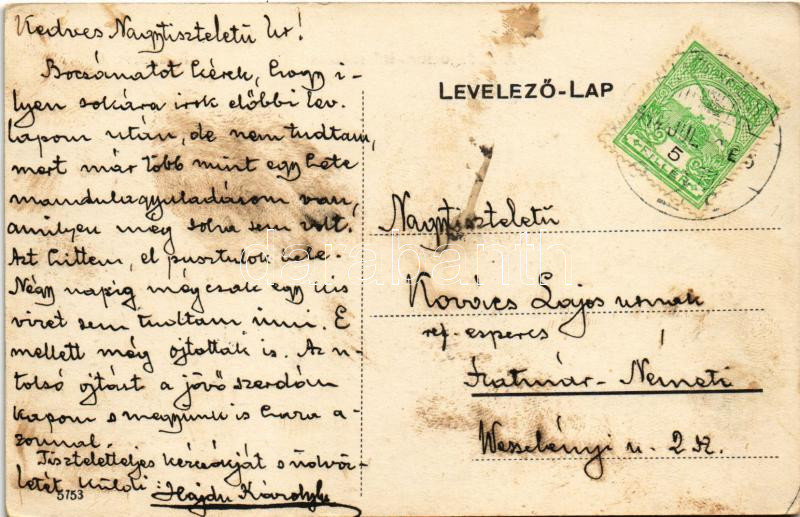 Kedves Nagytiszteletű Úr!
Bocsánatot kérek, hogy i-
lyen sokára irok előbbi lev.
lapom után, de nem tudtam,
mert már több mint egy hete
mandulagyuladásom van,
amilyen még soha sem volt.
Azt hittem, el pusztulok bele.
Négy napig mégcsak egy kis
vizet sem tudtam inni. E
mellett még ojtottak is. Az u-
tolsó ojtást a jövő szerdán
kapom s megyünk is haza a-
zonnal.
Tiszteletteljes kézcsókját s üdvöz-
letét küldi: Hajdu Károly
5753
LEVELEZŐ-LAP
JUL.
5
FILLÉR
Nagytiszteletű
Kovács Lajos urnak
ref. esperes
Szatmár-Németi
Wesselényi u. 2 sz.
darabanth